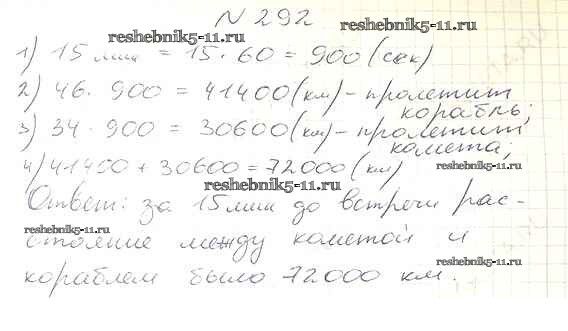 N 292
reshebnik5-11.ru
reshebnik5-11.ru
1) 15 мин = 15 · 60 = 900 (сек)
2) 46 · 900 = 41400 (км) - пролетит
корабль;
3) 34 · 900 = 30600 (км) - пролетит
комета;
4) 41400 + 30600 = 72000 (км)
reshebnik5-11.ru
reshebnik5-11.ru
Ответ: за 15 мин до встречи рас-
reshebnik5-11.ru
стояние между кометой и
reshebnik5-11.ru
кораблем было 72000 км.